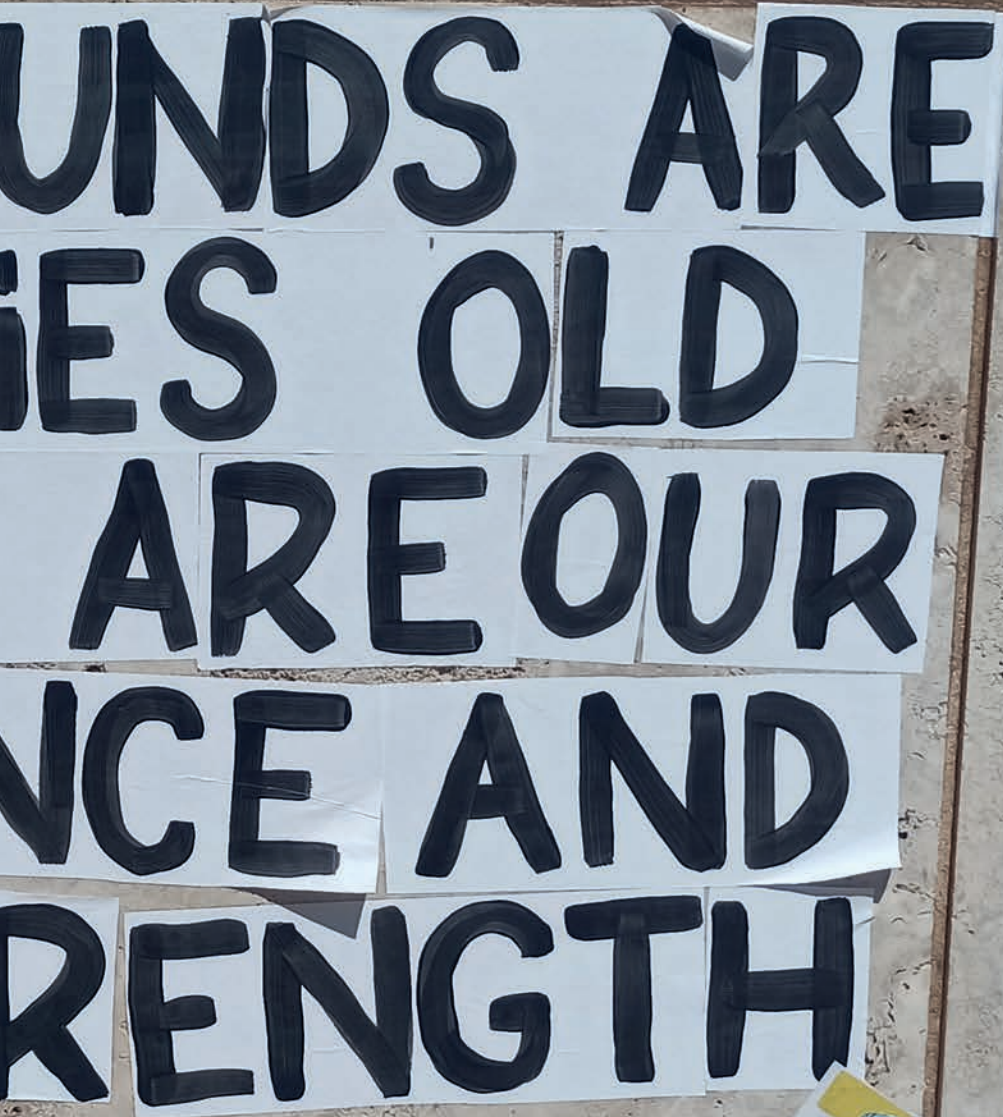 UNDS ARE
iES OLD
ARE OUR
NCE AND
RENGTH